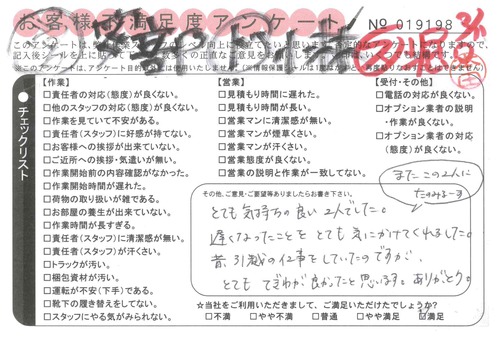 お客様ご満足度アンケート
№ 019198
【作業】
□責任者の対応(態度)が良くない。
□他のスタッフの対応(態度)が良くない。
□作業を見ていて不安がある。
□責任者(スタッフ)に好感が持てない。
□お客様への挨拶が出来ていない。
□ご近所への挨拶・気遣いが無い。
□作業開始前の内容確認がなかった。
□作業開始時間が遅れた。
□荷物の取り扱いが雑である。
□お部屋の養生が出来ていない。
□作業時間が長すぎる。
□責任者(スタッフ)に清潔感が無い。
□責任者(スタッフ)が汗くさい。
□トラックが汚い。
□梱包資材が汚い。
□運転が不安(下手)である。
□靴下の履き替えをしてない。
□スタッフにやる気がみられない。
【営業】
□見積もり時間に遅れた。
□見積もり時間が長い。
□営業マンに清潔感が無い。
□営業マンが煙草くさい。
□営業マンが汗くさい。
□営業態度が良くない。
□営業の説明と作業が一致してない。
【受付・その他】
□電話の対応が良くない。
□オプション業者の説明
・作業が良くない。
□オプション業者の対応
(態度)が良くない。
チェックリスト
またこの2人に
たのみまーす
その他、ご意見・ご要望等ありましたらお書き下さい。
とても気持ちの良い2人でした。
遅くなったことをとても気にかけてくれました。
昔、引越の仕事をしていたのですが、
とてもてぎわが良かったと思います。ありがとう。
☆当社をご利用いただきまして、ご満足いただけたでしょうか？
□不満 □やや不満 □普通 □やや満足 ☑満足